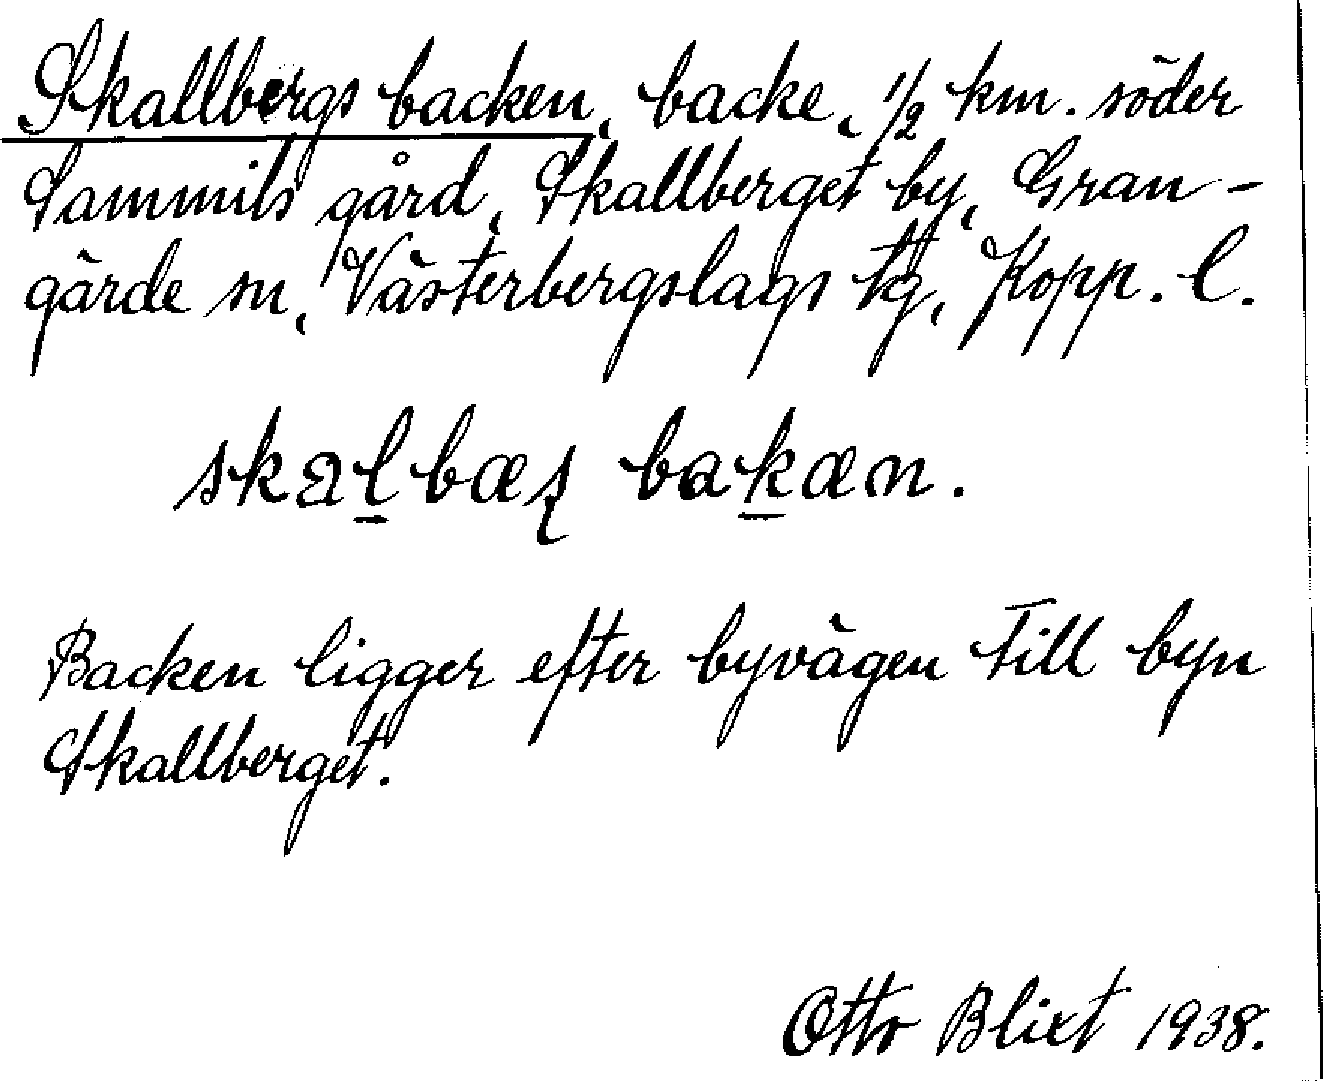 Skallbergs backen, backe, 1/2 km. söder
Sammils gård, Skallberget by, Gran-
gärde sn, Västerbergslags tg, Kopp. l.
skal̲bæʂ bak̲æn.
Backen ligger efter byvägen till byn
Skallberget.
Otto Blixt 1938.